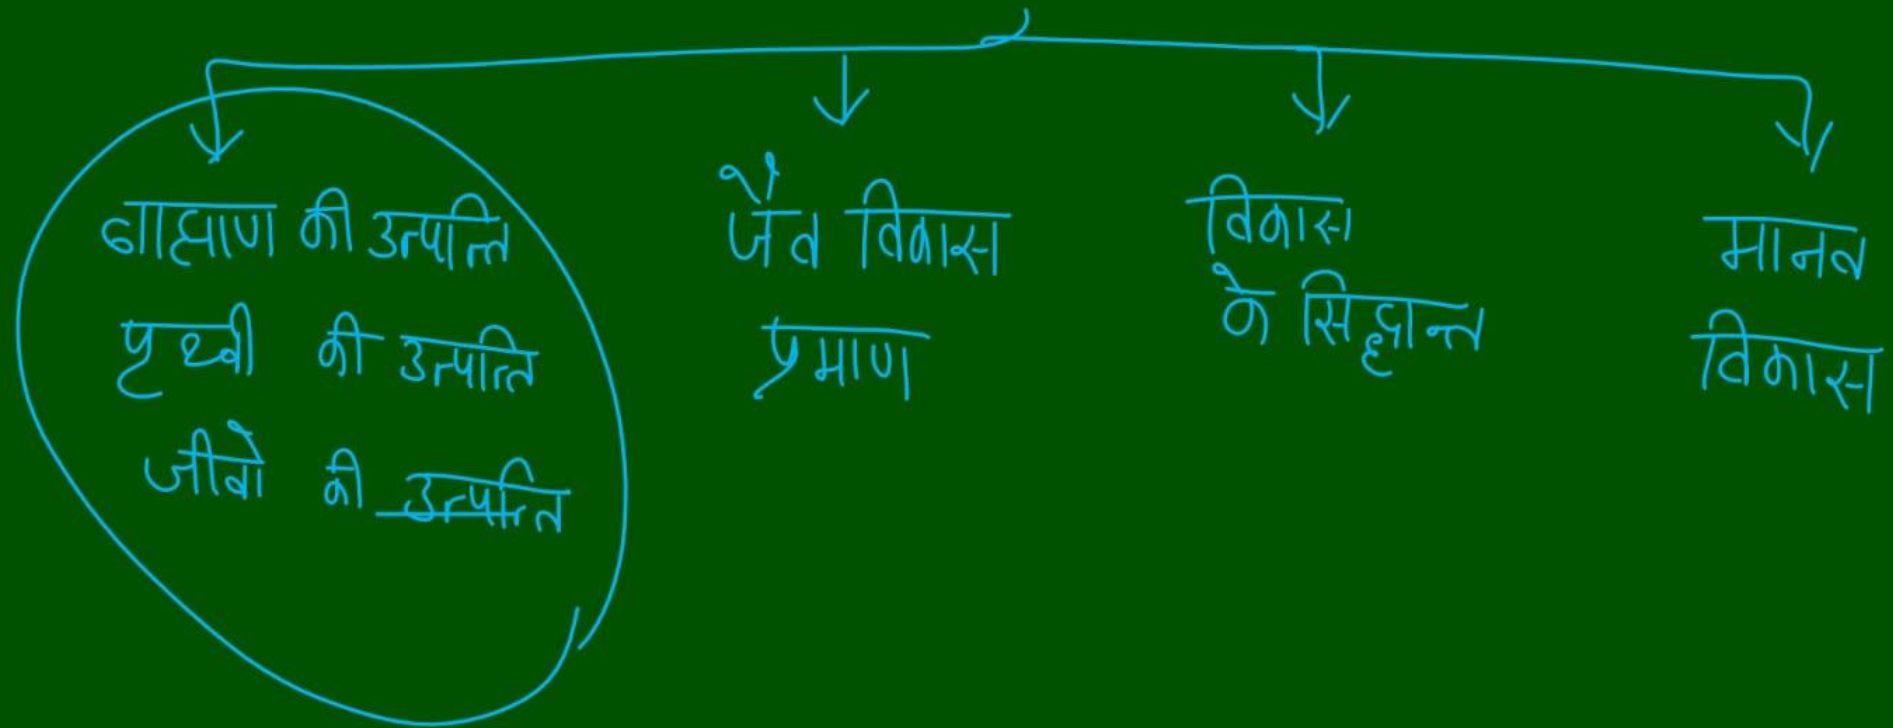 ब्राह्मण की उत्पत्ति
पृथ्वी की उत्पत्ति
जीवो की उत्पत्ति
जैव विकास
प्रमाण
विकास
के सिद्धान्त
मानव
विकास